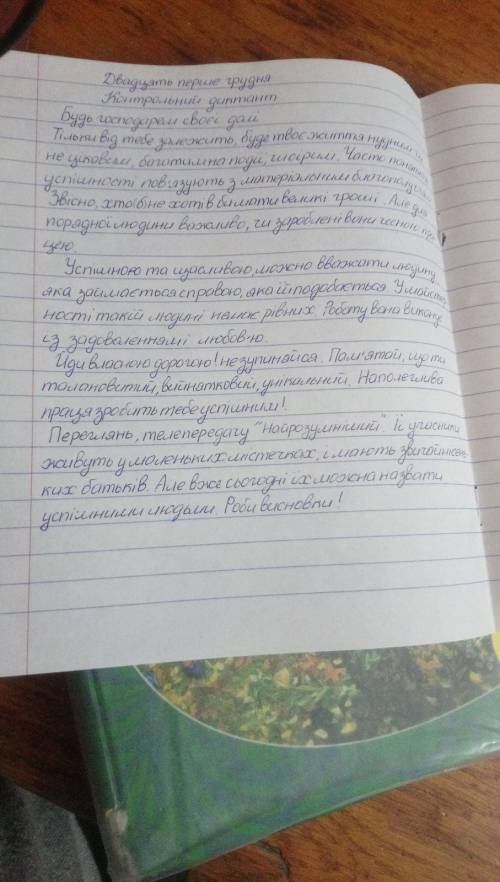 Двадцять перше грудня
Контрольний диктант
Будь господарем своєї долі
Тільки від тебе залежить, буде твоє життя нудним чи
не цікавим, багатим на події, щасним. Часто поняття
успішності пов'язують з матеріальним благополуччям.
Звісно, хто ібне хотів би мати великі гроші. Але для
порядної людини важливо, чи зароблені вони чесною пра
цею.
Успішною та щасливою, можно вважати людину,
яка займається справою, яка їй подобається. У майстер
ності такій людині немає рівних. Роботу вона виконує
із задоволенням і любов'ю.
Йди власною дорогою! не зупиняйся. Пам'ятай, що ти
талановитий, вийнятковий, унікальний. Наполеглива
праця зробить тебе успішним!
Переглянь, телепередачу "Найрозумніший". Її учасники
живуть у маленьких містечках, і мають звичайнісінь
ких батьків. Але вже сьогодні їх можна назвати
успішними людьми. Роби висновки!